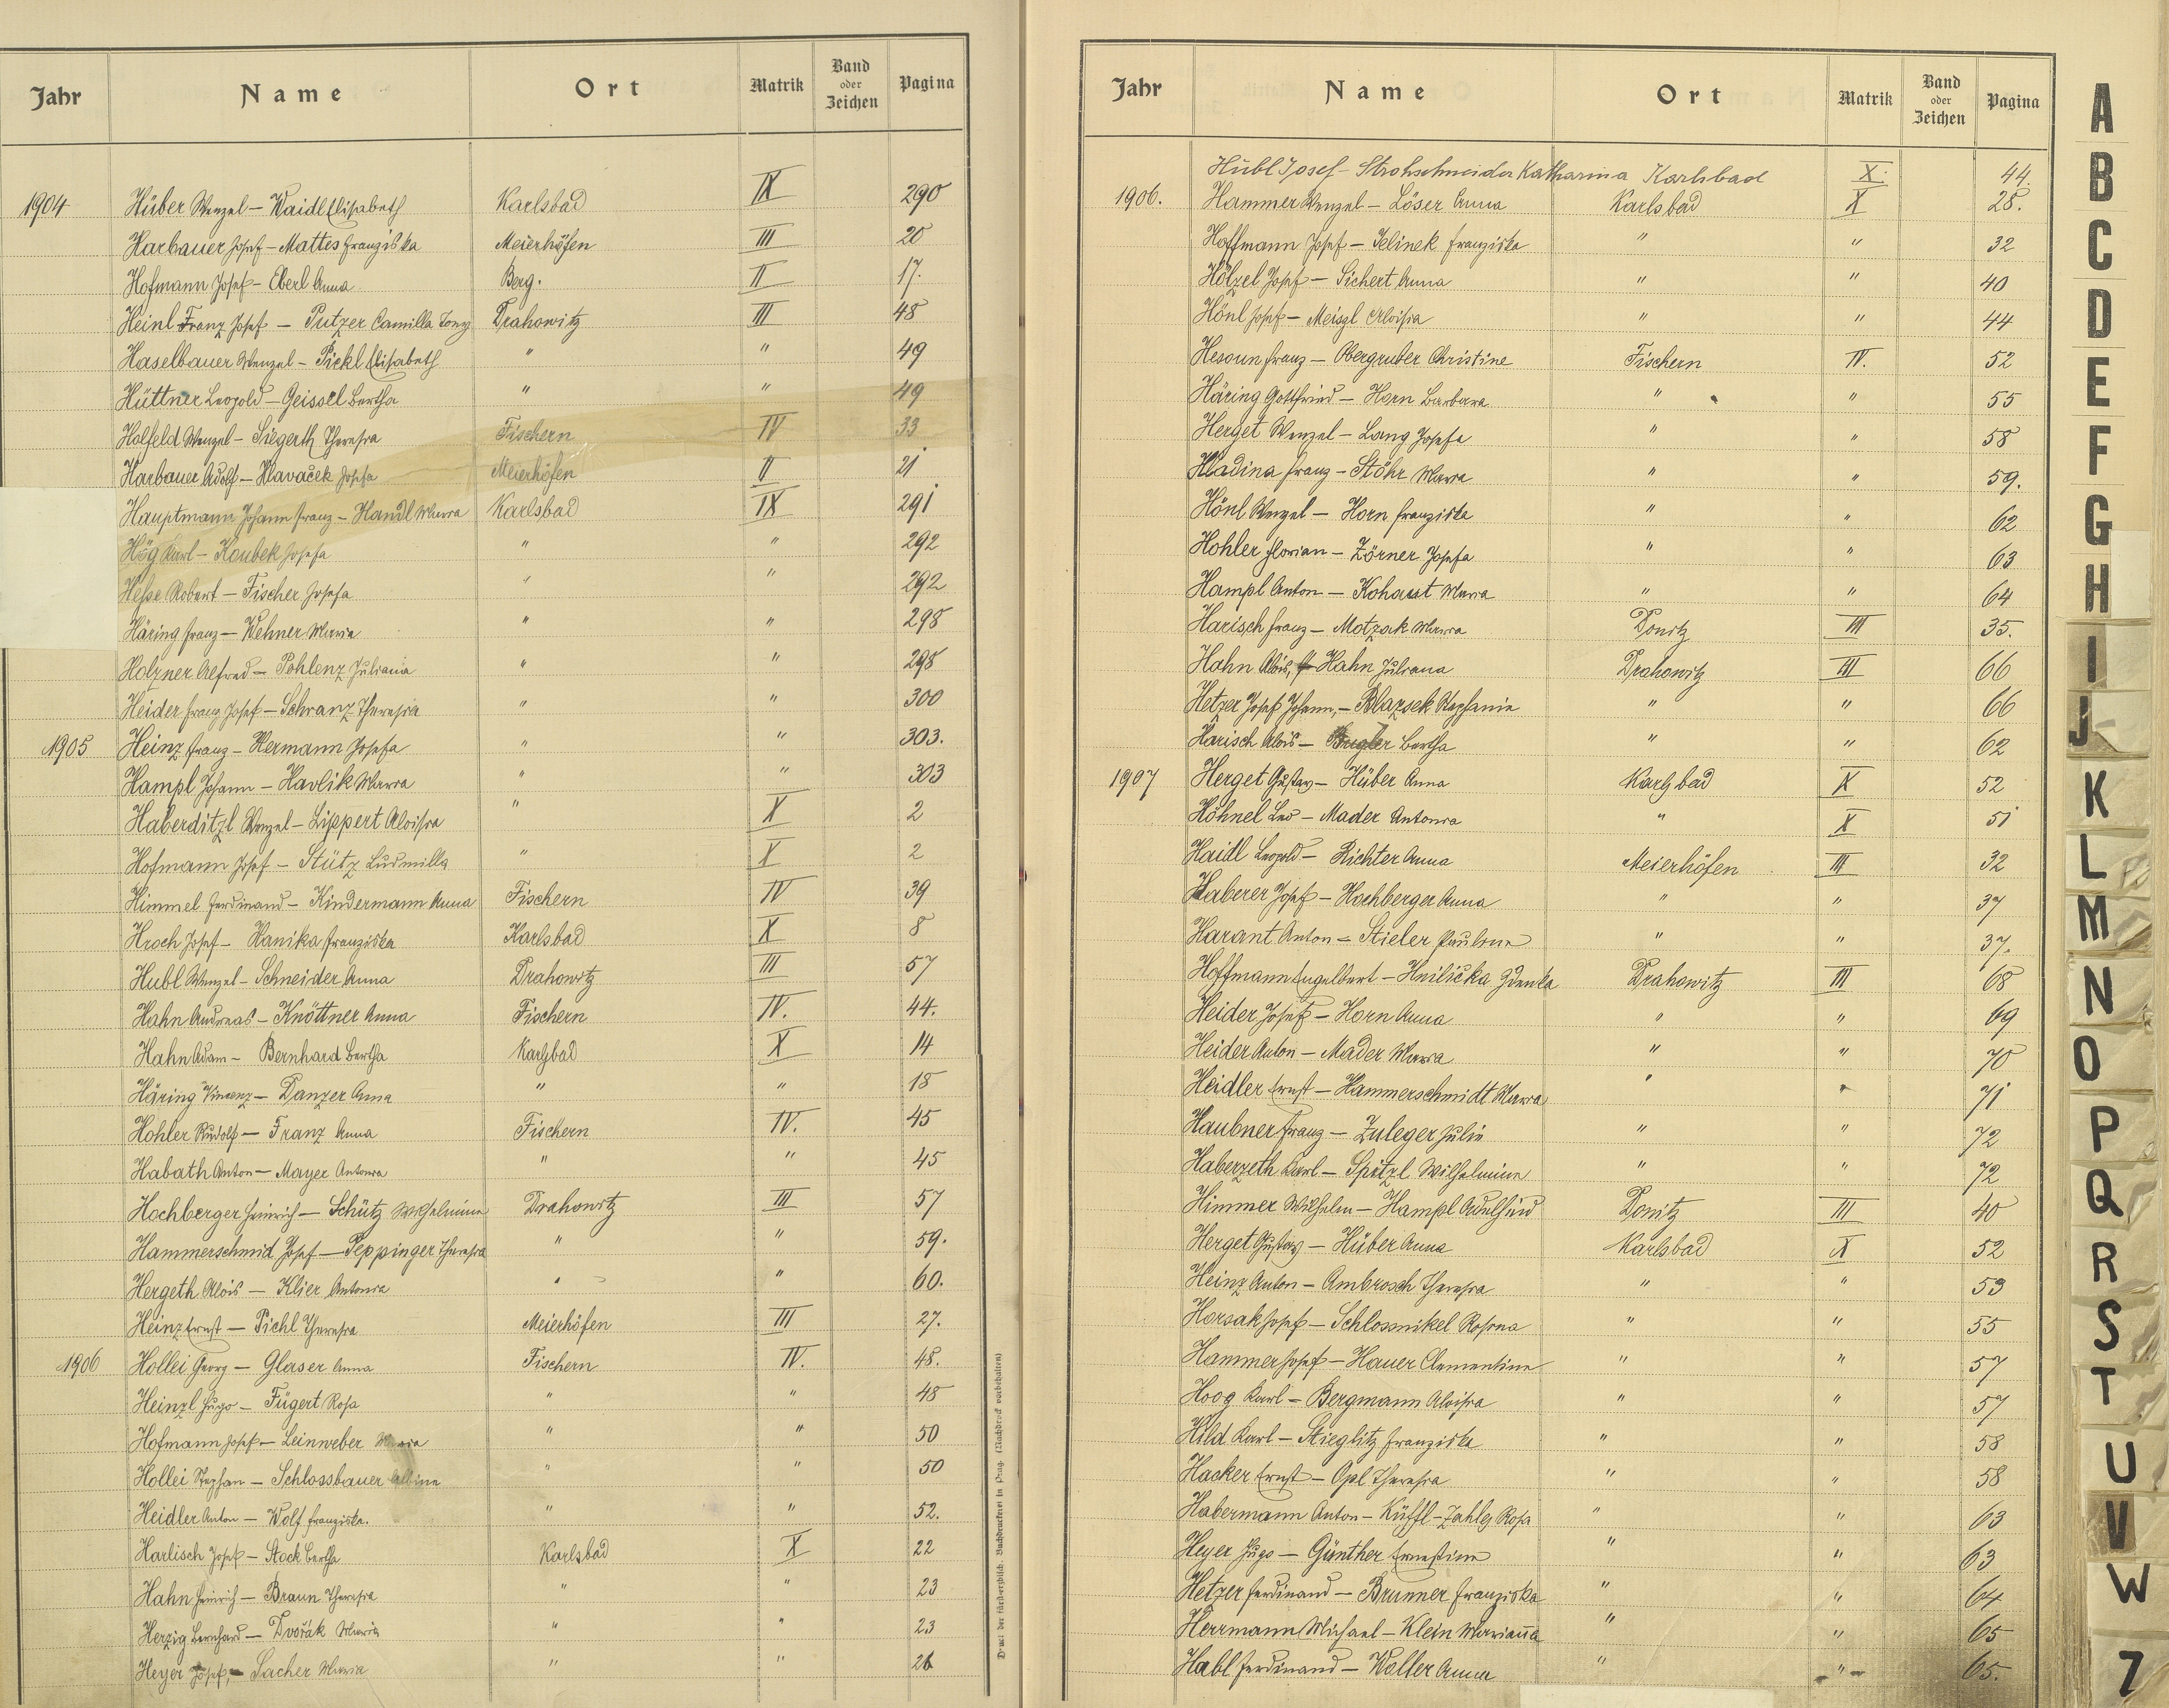 Jahr Name Ort Matrik Band oder Zeichen Pagina
1904 Hüber Wenzel – Waidl Elisabeth Karlsbad IX 290
Harbauer Josef – Mattes Franziska Meierhöfen III 20
Hofmann Josef – Eberl Anna Berg. II 17.
Heinl Franz Josef – Putzer Camilla Tony Drahowitz III 48
Haselbauer Wenzel – Pickl Elisabeth " " 49
Hüttner Leopold – Geissel Bertha " " 49
Holfeld Wenzel – Siegerth Theresia Fischern IV 33
Harbauer Adolf – Hlavaček Josefa Meierhöfen II 21
Hauptmann Johann Franz – Handl Maria Karlsbad IX 291
Hög Karl – Koubek Josefa " " 292
Hesse Robert – Fischer Josefa " " 292
Häring Franz – Wehner Maria " " 298
Holzner Alfred – Pohlenz Juliana " " 298
Heider Franz Josef – Schranz Theresia " " 300
1905 Heinz Franz – Hermann Josefa " " 303.
Hampl Johann – Havlik Maria " " 303
Haberditzl Wenzel – Lippert Aloisia " X 2
Hofmann Josef – Stütz Ludmilla " X 2
Himmel Ferdinand – Kindermann Anna Fischern IV 39
Hroch Josef – Hanika Franziska Karlsbad X 8
Hubl Wenzel – Schneider Anna Drahowitz III 57
Hahn Andreas – Knöttner Anna Fischern IV. 44.
Hahn Adam – Bernhard Bertha Karlsbad X 14
Häring Vincenz – Danzer Anna " " 18
Hohler Rudolf – Franz Anna Fischern IV. 45
Habath Anton – Mayer Antonia " " 45
Hochberger Heinrich – Schütz Wilhelmine Drahowitz III 57
Hammerschmid Josef – Peppinger Theresia " " 59.
Hergeth Alois – Klier Antonia " " 60.
Heinz Ernst – Pichl Theresia Meierhöfen III 27.
1906 Hollei Georg – Glaser Anna Fischern IV. 48.
Heinzl Hugo – Fügert Rosa " " 48
Hofmann Josef – Leinweber Maria " " 50
Hollei Stephan – Schlossbauer Albine " " 50
Heidler Anton – Wolf Franziska. " " 52.
Harlisch Josef – Stock Bertha Karlsbad X 22
Hahn Heinrich – Braun Theresia " " 23
Herzig Bernhard – Dvořák Maria " " 23
Heyer Josef, – Sacher Maria " " 26
Druck der fürsterzbisch. Buchdruckerei in Prag. (Nachdruck vorbehalten)
Jahr Name Ort Matrik Band oder Zeichen Pagina
Hubl Josef – Strohschneider Katharina Karlsbad X. 44
1906. Hammer Wenzel – Löser Anna Karlsbad X 28.
Hoffmann Josef – Jelinek Franziska " " 32
Hölzel Josef – Sichert Anna " " 40
Hönl Josef – Meisgl Aloisia " " 44
Hesoun Franz – Obergruber Christine Fischern IV. 52
Häring Gottfried – Horn Barbara " " 55
Herget Wenzel – Lang Josefa " " 58
Hladina Franz – Stöhr Maria " " 59.
Hönl Wenzel – Horn Franziska " " 62
Hohler Florian – Zörner Josefa " " 63
Hampl Anton – Kohout Maria " " 64
Harisch Franz – Motzak Maria Donitz III 35.
Hahn Alois, Hahn Juliana Drahowitz III 66
Hetzer Josef Johann, – Blazsek Stephanie " " 66
Harisch Alois – Bertha " " 62
1907 Herget Gustav – Hüber Anna Karlsbad X 52
Höhnel Leo – Mader Antonia " X 51
Haidl Leopold – Richter Anna Meierhöfen III 32
Haberer Josef – Hochberger Anna " " 37
Harant Anton – Stieler Pauline " " 37.
Hoffmann Engelbert – Hnilička Zdenka Drahowitz III 68
Heider Josef – Horn Anna " " 69
Heider Anton – Mader Maria " " 70
Heidler Ernst – Hammerschmidt Maria " " 71
Haubner Franz – Zuleger Julie " " 72
Haberzeth Karl – Spitzl Wilhelmine " " 72
Himmer Wilhelm – Hampl Adelheid Donitz III 40
Herget Gustav – Hüber Anna Karlsbad X 52
Heinz Anton – Ambrosch Theresia " " 53
Horsak Josef – Schlossnikel Rosina " " 55
Hammer Josef – Hauer Clementine " " 57
Hoog Karl – Bergmann Aloisia " " 57
Hild Karl – Stieglitz Franziska " " 58
Hacker Ernst – Opl Theresia " " 58
Habermann Anton – Küffl-Zahleg Rosa " " 63
Heyer Hugo – Günther Ernestine " " 63
Hetzer Ferdinand – Brunner Franziska " " 64
Herrmann Michael – Klein Marianna " " 65
Habl Ferdinand – Waller Anna " " 65.
A
B
C
D
E
F
G
H
I
J
K
L
M
N
O
P
Q
R
S
T
U
V
W
Z